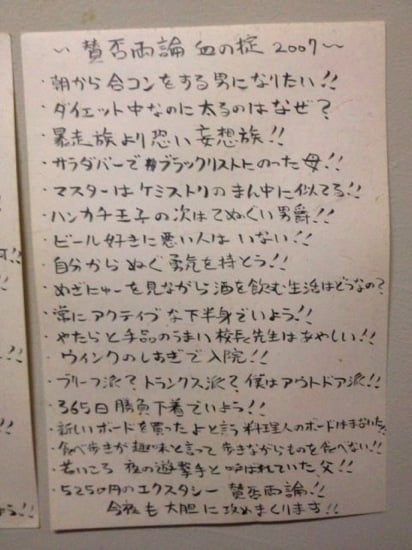 〜 賛否両論 血の掟 2007 〜
・朝から合コンをする男になりたい!!
・ダイエット中なのに太るのはなぜ?
・暴走族より恐い妄想族!!
・サラダバーでブラックリストにのった母!!
・マスターはケミストリのまん中に似てる!!
・ハンカチ王子の次はてぬぐい男爵!!
・ビール好きに悪い人はいない!!
・自分からぬぐ勇気を持とう!!
・めざにゅーを見ながら酒を飲む生活はどうなの?
・常にアクティブな下半身でいよう!!
・やたらと手品のうまい校長先生はあやしい!!
・ウインクのしすぎで入院!!
・ブリーフ派?トランクス派?僕はアウトドア派!!
・365日勝負下着でいよう!!
・新しいボードを買ったよと言う料理人のボードはまないた!!
・食べ歩きが趣味と言って歩きながらものを食べない!!
・若いころ夜の遊撃手と呼ばれていた父!!
・5250円のエクスタシー 賛否両論!!
今夜も大胆に攻めまくります!!